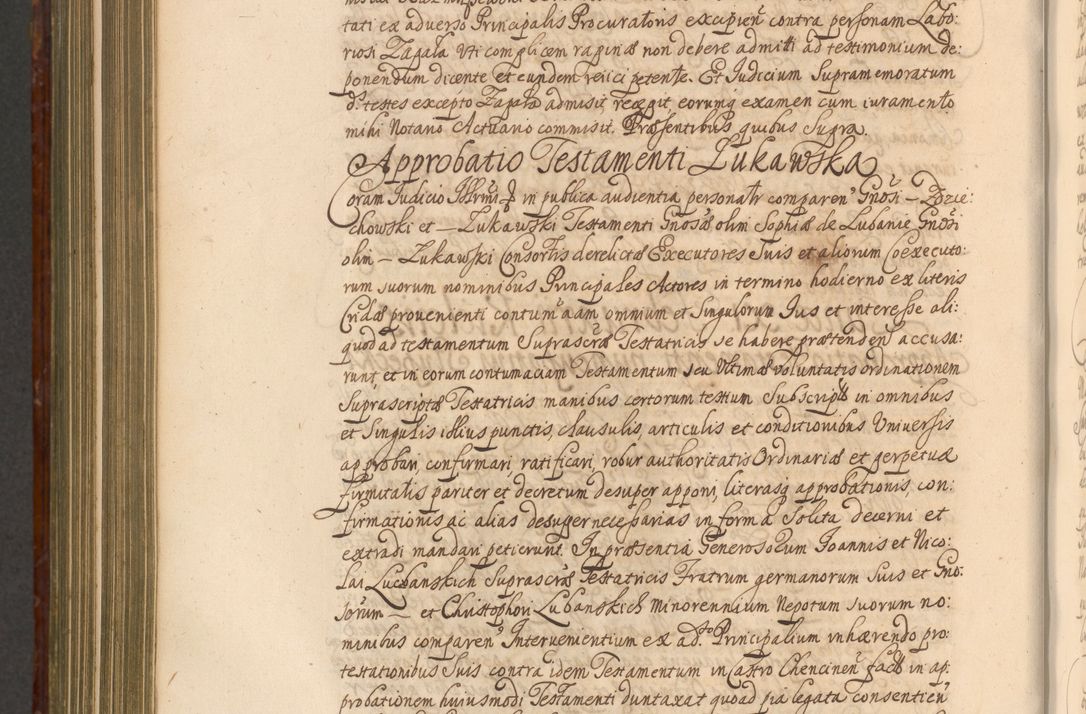 tati ex adverso Principalis Procuratoris excipien contra personam Labo:
riosi Zagała uti complicem raginas non debere admitti ad testimonium de:
ponendum dicente et eundem reiici petente. Et Iudicium Supramemoratum
ds testes excepto Zagała admisit, recepit, eorumq examen cum iuramento
mihi Notario Actuario commisit. Præsentibus quibus Supra.
Approbatio Testamenti Łukawska
Coram Iudicio Illrmi in publica audientia personalr comparen Gnosi – Zdzie:
chowski et – Łukawski Testamenti Gnosæ olim Sophiæ de Lubanie Gnosi
olim – Łukawski Consortis derelictæ Executores Suis et aliorum Coexecuto:
rum suorum nominibus Principales Actores in termino hodierno ex literis
Cridæ provenienti contumaciam omnium et Singulorum Ius et interesse ali:
quod ad testamentum Suprascræ Testatricis se habere prætenden accusa:
runt, et in eorum contumaciam Testamentum seu Ultimæ voluntatis ordinationem
Suprascriptæ Testatricis manibus certorum testium Subscript in omnibus
et Singulis illius punctis, clausulis, articulis et conditionibus Universis
approbari, confirmari, ratificari, robur authoritatis Ordinariæ et perpetuæ
firmitatis pariter et decretum desuper apponi, literasq approbationis, con:
firmationis ac alias desuper necessarias in forma Solita decerni et
extradi mandari petierunt. In præsentia Generosorum Ioannis et Nico:
lai Lucbanskich Suprascræ Testatricis Fratrum germanorum Suis et Gno:
sorum – et Christophori Lubanskich minorennium Nepotum suorum no:
minibus comparen Intervenientium ex ad.to Principalium inhærendo pro:
testationibus Suis contra idem Testamentum in Castro Chencinen fact in ap:
probationem huiusmodi Testamenti duntaxat quoad pia legata consentien